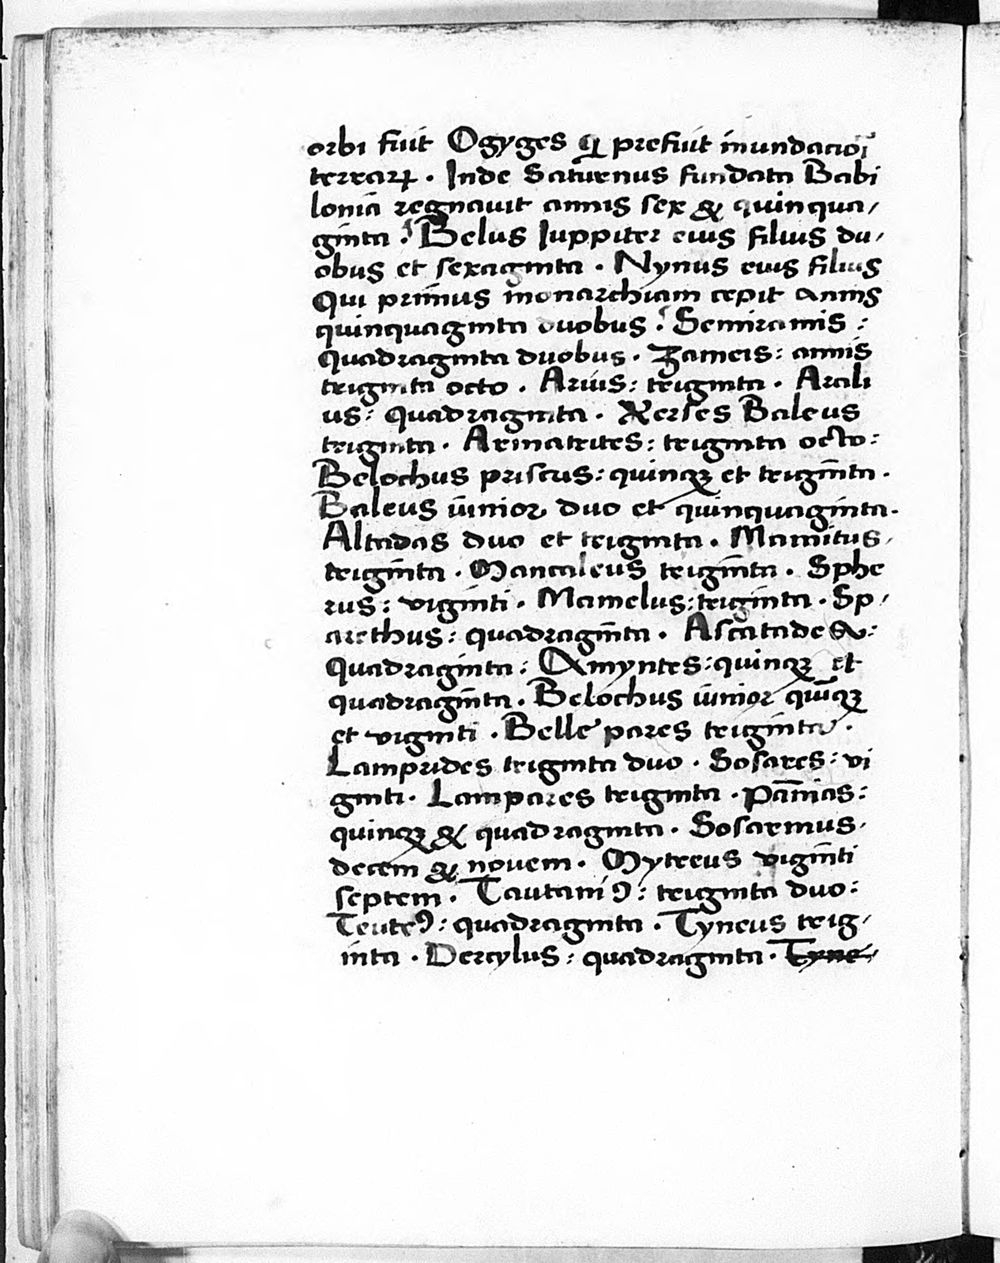 orbi fuit Ogyges qͥ prefuit inundacioī
terrarꝝ · Inde Saturnus fundata Babi
loniā regnauit annis sex & quinqua/
ginta : Belus Iuppiter eius filius du/
obus et sexaginta · Nynus eius filius
Qui primus monarchiam cepit annis
quinquaginta duobus : Semiramis :
quadraginta duobus · Zameis : annis
triginta octo · Arius : triginta · Arali
us : quadraginta · Xerses Baleus
triginta · Armatrites : triginta octo :
Belochus priscus : quinqꝫ et trigīnta ·
Baleus iunior duo et quinquaginta ·
Altadas duo et triginta · Mamitus /
trigīnta · Mancaleus trigīnta · Sphe
rus : viginti · Mamelus : triginta · Sp /
arethus : quadragīnta · Ascatade& :
Quadraginta : Amyntes : quinqꝫ et
quadragīnta · Belochus iunior quīqꝫ
et viginti · Belle pares triginta ·
Lamprides triginta duo · Sosares : vi
ginti · Lampares triginta · Pānias :
quinqꝫ & quadraginta · Sosarmus /
decem & novem · Mytreus vigīnti
septem · Tautaniꝰ : triginta duo :
Teuteꝰ : quadraginta · Tyneus trig /
inta · Dercylus : quadraginta · Tyne /